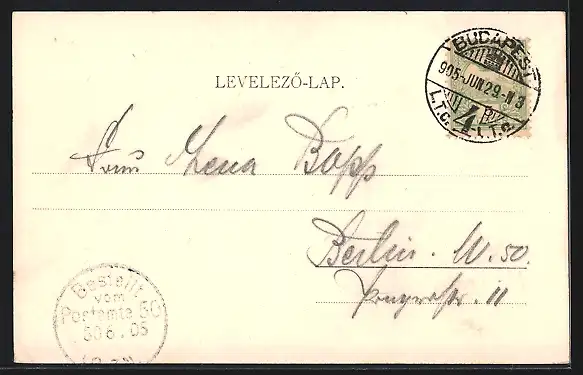 LEVELEZŐ-LAP.
BUDAPEST
905-JUN 29-N 3
L.T.C. 4 L.T.C.
Bopp
Berlin. W. 50.
11
Bestellt
vom
Postamte 50
30 6. 05